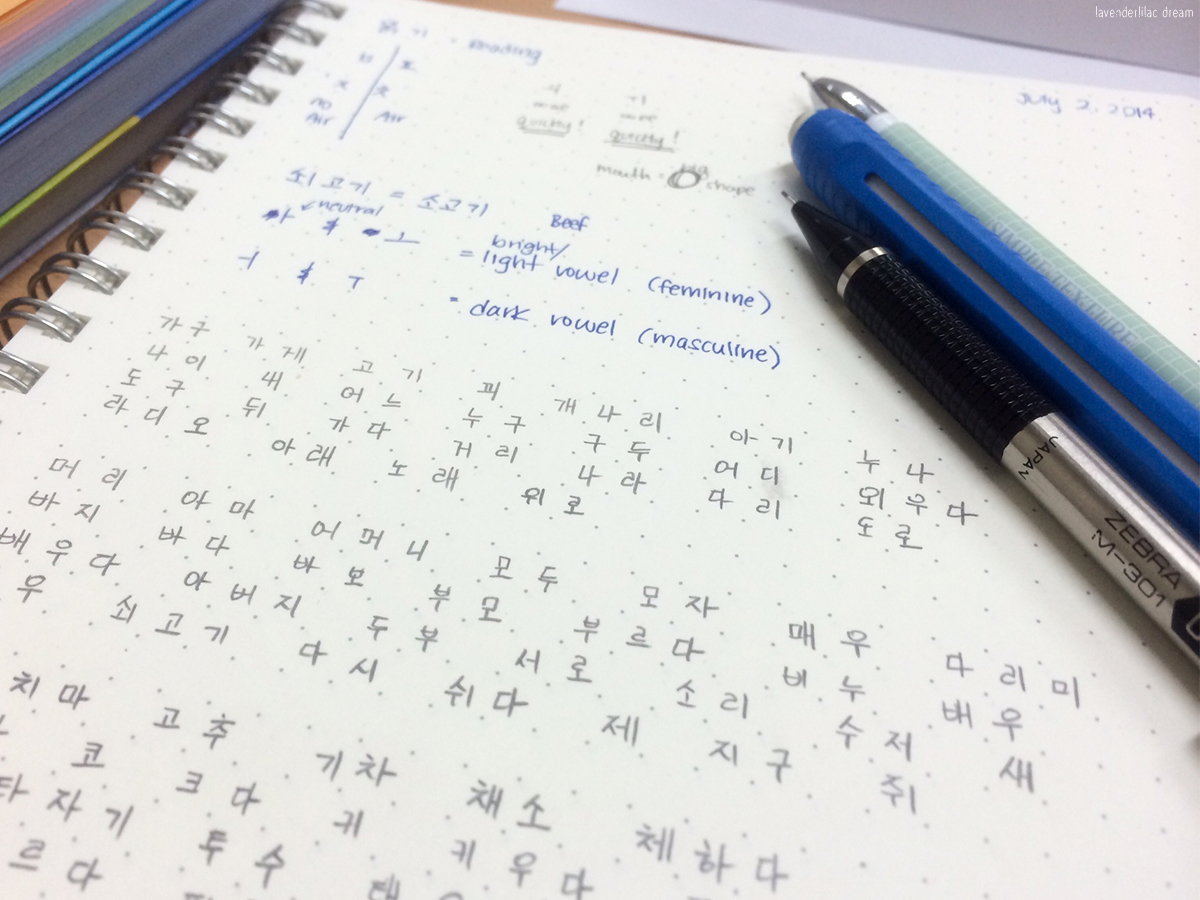 lavenderlilac dream
읽기 · Reading
July 2, 2014
no Air
Air
quickly!
quickly!
mouth = O shape
쇠고기 = 소고기 Beef
neutral
ㅏ & ㅗ = bright/light vowel (feminine)
ㅓ & ㅜ = dark vowel (masculine)
가구 가게 고기 피 개나리 아기 누나
나이 내 어느 누구 구두 어디 외우다
도구 뒤 가다 거리 나라 다리 도로
라디오 아래 노래 위로
머리 아마 어머니 모두 모자 매우 다리미
바지 바다 바보 부모 부르다 비누 배우
배우다 아버지 두부 서로 소리 수저 새
우 쇠고기 다시 쉬다 제 지구 쥐
치마 고추 기차 채소 체하다
코 크다 귀 키우다
타자기 투수
르다
SIMPLE TEXTURE
JAPAN
ZEBRA M-301